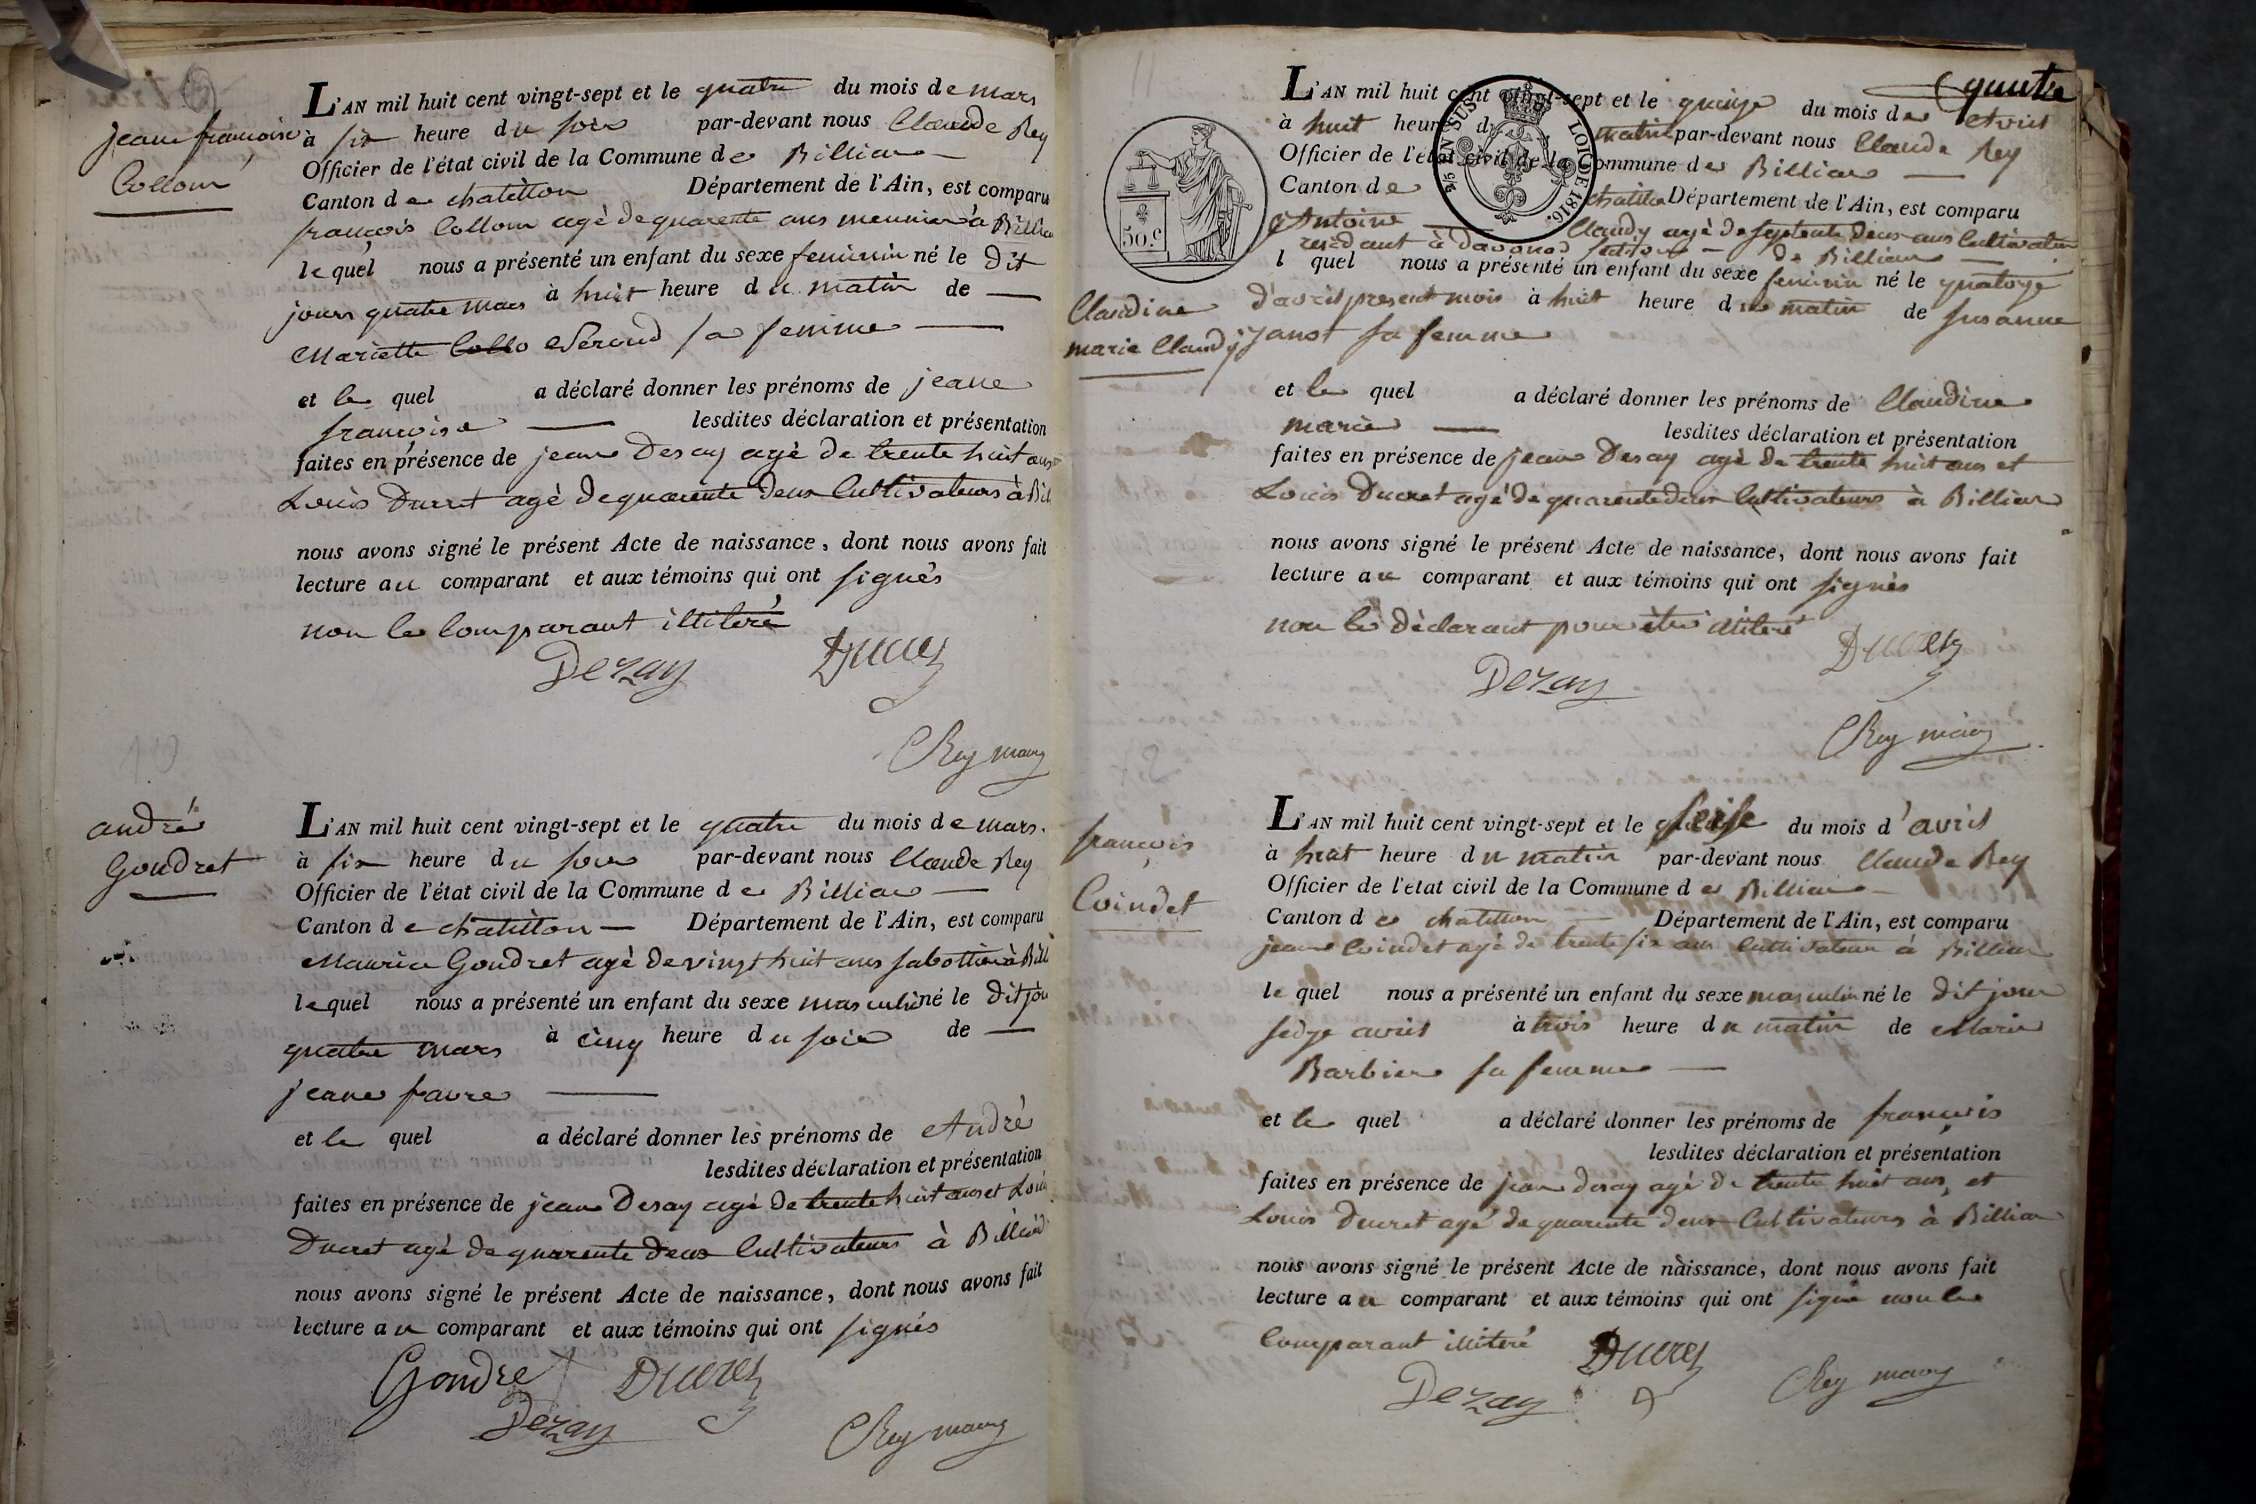 jeane françoise
Collom
L'AN mil huit cent vingt-sept et le quatre du mois de mars
à six heure du soir par-devant nous Claude Rey
Officier de l'état civil de la Commune de Billiat
Canton de chatillon Département de l'Ain, est comparu
françois Collom agé de quarente ans meunier à Billia
lequel nous a présenté un enfant du sexe feminin né le dit
jours quatre mars à huit heure du matin de
Mariette Collo Seroud sa femme
et le quel a déclaré donner les prénoms de jeane
françoise lesdites déclaration et présentation
faites en présence de jean Desay agé de trente huit ans
Louis Ducret agé de quarente deux Cultivateurs à Bil
nous avons signé le présent Acte de naissance, dont nous avons fait
lecture au comparant et aux témoins qui ont signés
non le Comparant illiteré
Dezay Ducret
C Rey maire
andré
Goudret
L'AN mil huit cent vingt-sept et le quatre du mois de mars
à six heure du soir par-devant nous Claude Rey
Officier de l'état civil de la Commune de Billiat
Canton de chatillon Département de l'Ain, est comparu
Maurice Goudret agé de vingt huit ans sabottier à Bill
lequel nous a présenté un enfant du sexe masculin né le dit jou
quatre mars à cinq heure du soir de
jeane favre
et le quel a déclaré donner les prénoms de André
lesdites déclaration et présentation
faites en présence de jean Desay agé de trente huit ans et Loui
Ducret agé de quarente deux Cultivateurs à Billiad
nous avons signé le présent Acte de naissance, dont nous avons fait
lecture au comparant et aux témoins qui ont signés
Goudret Ducret
Dezay C Rey maire
quatre
L'AN mil huit cent vingt-sept et le quinze du mois de Avril
à huit heure du matin par-devant nous Claude Rey
Officier de l'état civil de la Commune de Billiat
Canton de chatillon Département de l'Ain, est comparu
Antoine Claudy agé de septente deux ans Cultivateur
residant à de Billiat
l quel nous a présenté un enfant du sexe feminin né le quatorze
d'avril present mois à huit heure du matin de susanne
janot sa femme
Claudine
marie Claudy
et le quel a déclaré donner les prénoms de Claudine
marie lesdites déclaration et présentation
faites en présence de jean Desay agé de trente huit ans et
Louis Ducret agé de quarente deux Cultivateurs à Billiat
nous avons signé le présent Acte de naissance, dont nous avons fait
lecture au comparant et aux témoins qui ont signés
non le déclarant pour être illiteré
Ducret
Dezay
C Rey maire
50.c
EN SUS
LOI DE 1816.
françois
Coindet
L'AN mil huit cent vingt-sept et le seise du mois d'avril
à huit heure du matin par-devant nous Claude Rey
Officier de l'état civil de la Commune de Billiat
Canton de chatillon Département de l'Ain, est comparu
jean Coindet agé de trente six ans Cultivateur à Billiat
le quel nous a présenté un enfant du sexe masculin né le dit jour
seize avril à trois heure du matin de Marie
Barbier sa femme
et le quel a déclaré donner les prénoms de françois
lesdites déclaration et présentation
faites en présence de jean desay agé de trente huit ans, et
Louis Ducret agé de quarente deux Cultivateurs à Billiat
nous avons signé le présent Acte de naissance, dont nous avons fait
lecture au comparant et aux témoins qui ont signé non le
Comparant illiteré Ducret
Dezay C Rey maire